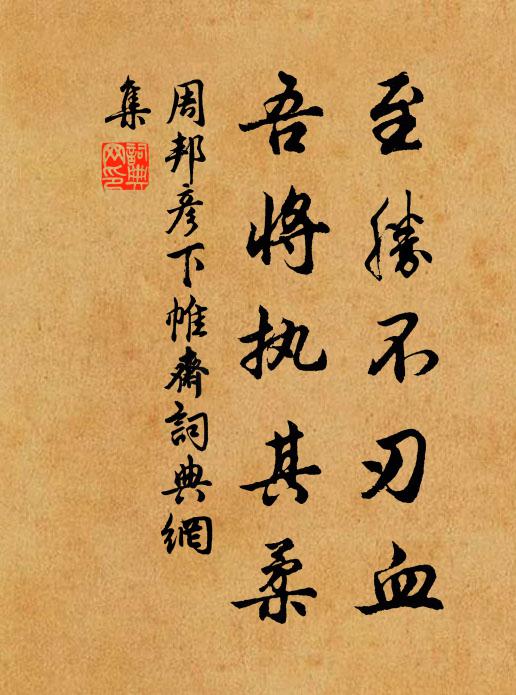 至勝不刃血
吾将执其柔
周邦彦下帷齋詞典網
集
詞典
网印